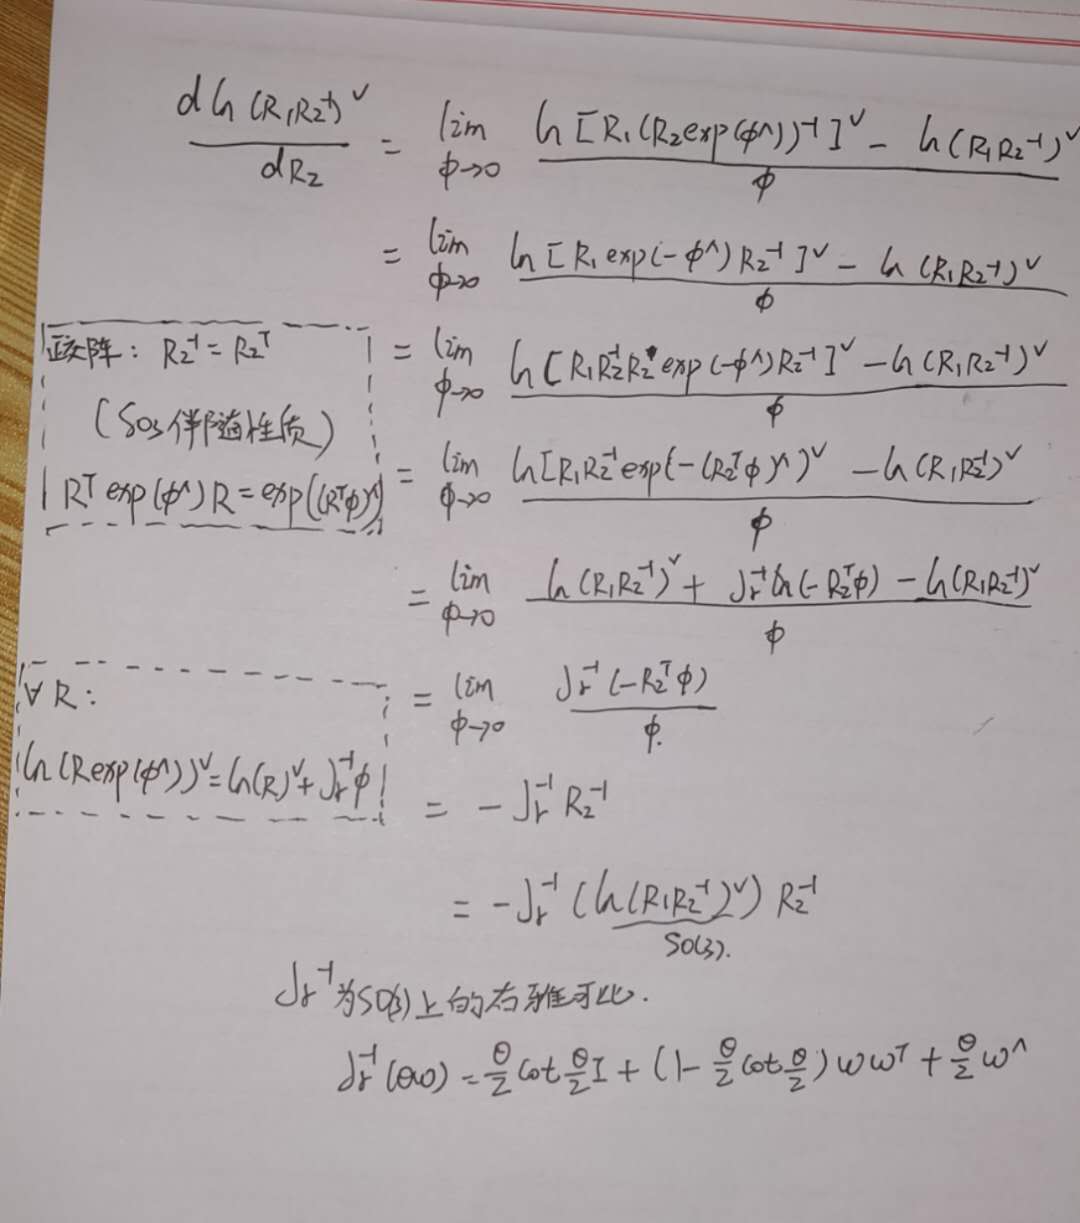 d ln (R₁R₂⁻¹)^∨ / dR₂ = lim_{φ→0} ln [R₁(R₂exp(φ^))⁻¹]^∨ - ln(R₁R₂⁻¹)^∨ / φ
= lim_{φ→0} ln [R₁ exp(-φ^) R₂⁻¹]^∨ - ln (R₁R₂⁻¹)^∨ / φ
正交阵: R₂⁻¹ = R₂ᵀ
= lim_{φ→0} ln [R₁R₂⁻¹R₂ exp(-φ^)R₂⁻¹]^∨ - ln (R₁R₂⁻¹)^∨ / φ
(SO3伴随性质)
Rᵀ exp(φ^) R = exp((Rᵀφ)^)
= lim_{φ→0} ln[R₁R₂⁻¹exp(-(R₂ᵀφ)^)^∨ - ln (R₁R₂⁻¹)^∨ / φ
= lim_{φ→0} ln(R₁R₂⁻¹)^∨ + Jr⁻¹ ln(-R₂ᵀφ) - ln(R₁R₂⁻¹)^∨ / φ
∀ R:
ln(Rexp(φ^))^∨ = ln(R)^∨ + Jr⁻¹φ
= lim_{φ→0} Jr⁻¹(-R₂ᵀφ) / φ.
= - Jr⁻¹ R₂⁻¹
= - Jr⁻¹ (ln(R₁R₂⁻¹)^∨) R₂⁻¹
SO(3).
Jr⁻¹为SO(3)上的右雅可比.
Jr⁻¹(θω) = θ/2 cot θ/2 I + (1 - θ/2 cot θ/2) ωωᵀ + θ/2 ω^